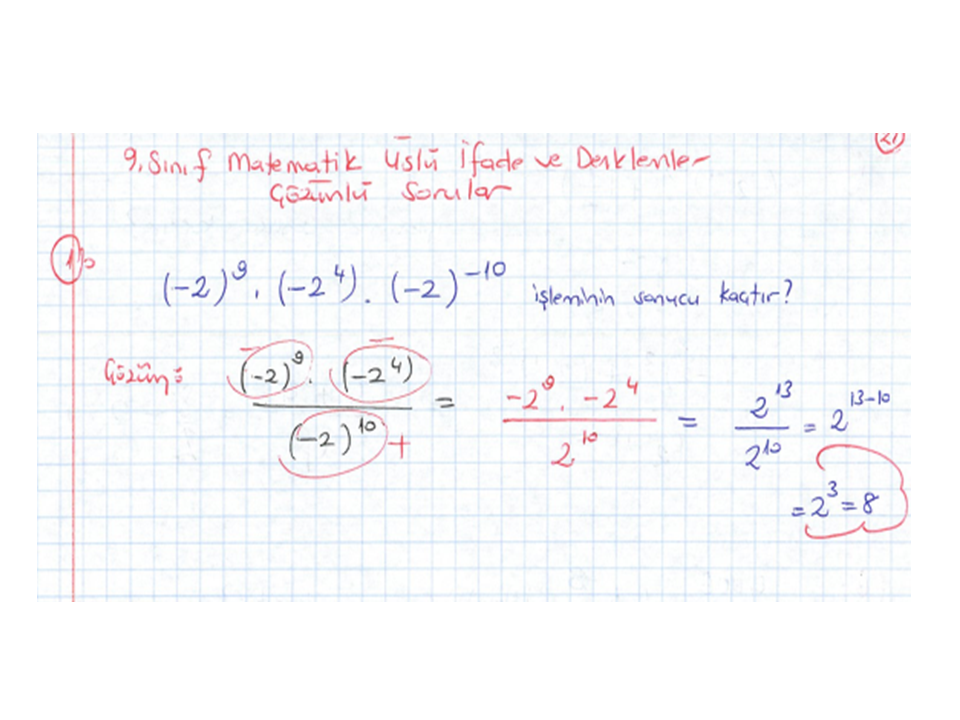 9. Sınıf Matematik Üslü İfade ve Denklemler
Çözümlü Sorular
1)
(-2)⁹ . (-2⁴) . (-2)⁻¹⁰ işleminin sonucu kaçtır?
Çözüm: (-2)⁹ . (-2⁴) / (-2)¹⁰ + = -2⁹ . -2⁴ / 2¹⁰ = 2¹³ / 2¹⁰ = 2¹³⁻¹⁰
= 2³ = 8